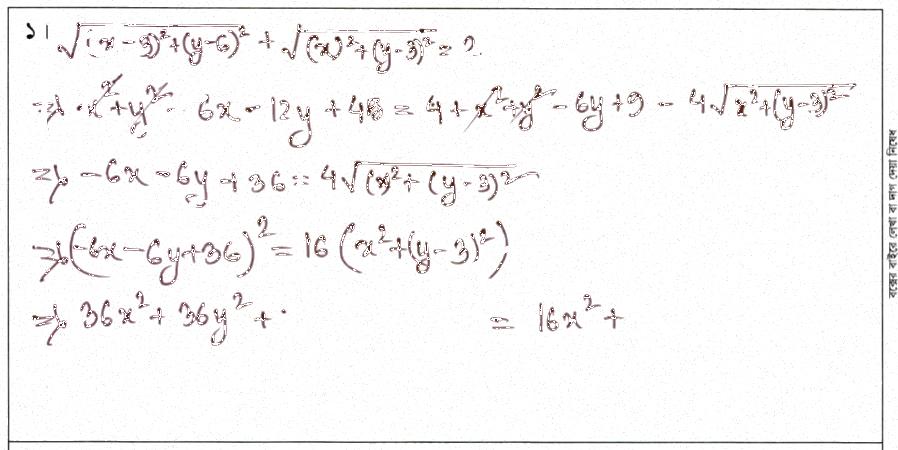 ১। √(x-3)²+(y-6)² + √(x)²+(y-3)² = 2
⇒ x²+y² - 6x - 12y + 45 = 4 + x²+y² - 6y + 9 - 4√x²+(y-3)²
⇒ -6x - 6y + 36 = 4√(x²+(y-3)²
⇒ (-6x-6y+36)² = 16(x²+(y-3)²)
⇒ 36x² + 36y² + = 16x² +
বক্সের বাইরে লেখা বা দাগ দেয়া নিষেধ